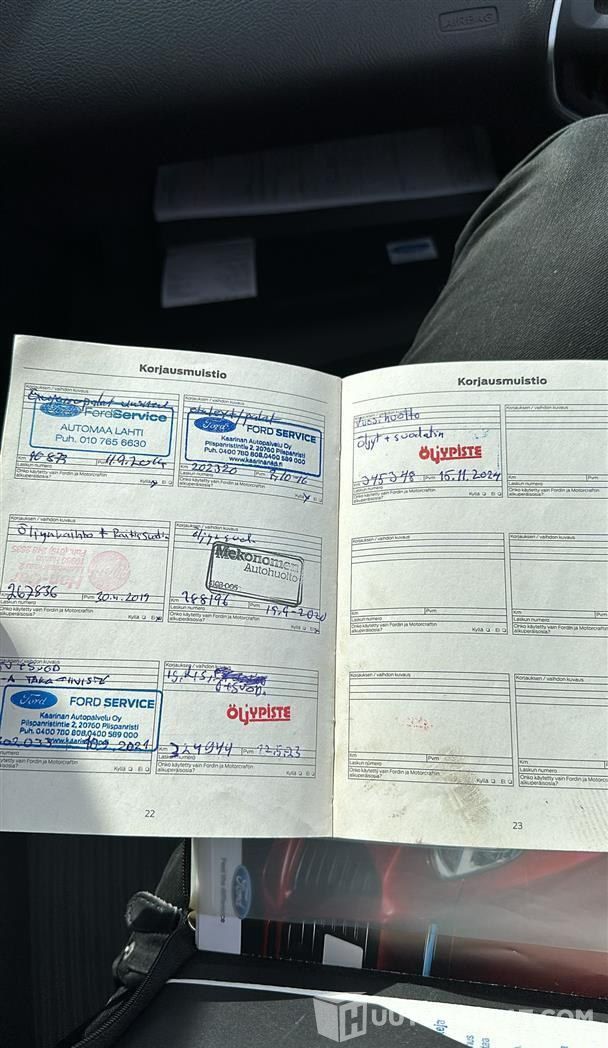 AIRBAG
Korjausmuistio
Korjauksen / vaihdon kuvaus
Ford FordService
AUTOMAA LAHTI
Puh. 010 765 6630
Km
Pvm 11.9.2014
Laskun numero
Onko käytetty vain Fordin ja Motorcraftin
alkuperäisosia? Kyllä Ei
Korjauksen / vaihdon kuvaus
Ford FORD SERVICE
Kaarinan Autopalvelu Oy
Piispanristintie 2, 20760 Piispanristi
Puh. 0400 780 808, 0400 589 000
www.kaarinanfd.fi
Km 202320
Laskun numero
Onko käytetty vain Fordin ja Motorcraftin
alkuperäisosia? Kyllä Ei
Korjauksen / vaihdon kuvaus
Öljynvaihto + Raitissuodin
Km 267836
Pvm 30.4.2019
Laskun numero
Onko käytetty vain Fordin ja Motorcraftin
alkuperäisosia? Kyllä Ei
Korjauksen / vaihdon kuvaus
Mekonomen
Autohuolto
Km 288196
Pvm 15.9-2020
Laskun numero
Onko käytetty vain Fordin ja Motorcraftin
alkuperäisosia? Kyllä Ei
Korjauksen / vaihdon kuvaus
TAKA TIIVISTE
Ford FORD SERVICE
Kaarinan Autopalvelu Oy
Piispanristintie 2, 20760 Piispanristi
Puh. 0400 780 808, 0400 589 000
Laskun numero
Onko käytetty vain Fordin ja Motorcraftin
alkuperäisosia? Kyllä Ei
Korjauksen / vaihdon kuvaus
ÖLJYPISTE
Km 324944
Pvm 12.5.23
Laskun numero
Onko käytetty vain Fordin ja Motorcraftin
alkuperäisosia? Kyllä Ei
22
Korjausmuistio
Korjauksen / vaihdon kuvaus
Vuosihuolto
Öljyt + suodatin
ÖLJYPISTE
Km 345348
Pvm 15.11.2024
Laskun numero
Onko käytetty vain Fordin ja Motorcraftin
alkuperäisosia? Kyllä Ei
Korjauksen / vaihdon kuvaus
Km
Laskun numero
Onko käytetty vain Fordin ja Motorcraftin
alkuperäisosia?
Korjauksen / vaihdon kuvaus
Km
Pvm
Laskun numero
Onko käytetty vain Fordin ja Motorcraftin
alkuperäisosia? Kyllä Ei
Korjauksen / vaihdon kuvaus
Km
Laskun numero
Onko käytetty vain Fordin ja Motorcraftin
alkuperäisosia?
Korjauksen / vaihdon kuvaus
Km
Pvm
Laskun numero
Onko käytetty vain Fordin ja Motorcraftin
alkuperäisosia? Kyllä Ei
Korjauksen / vaihdon kuvaus
Km
Laskun numero
Onko käytetty vain Fordin ja Motorcraftin
alkuperäisosia?
23
Ford
Feel the difference